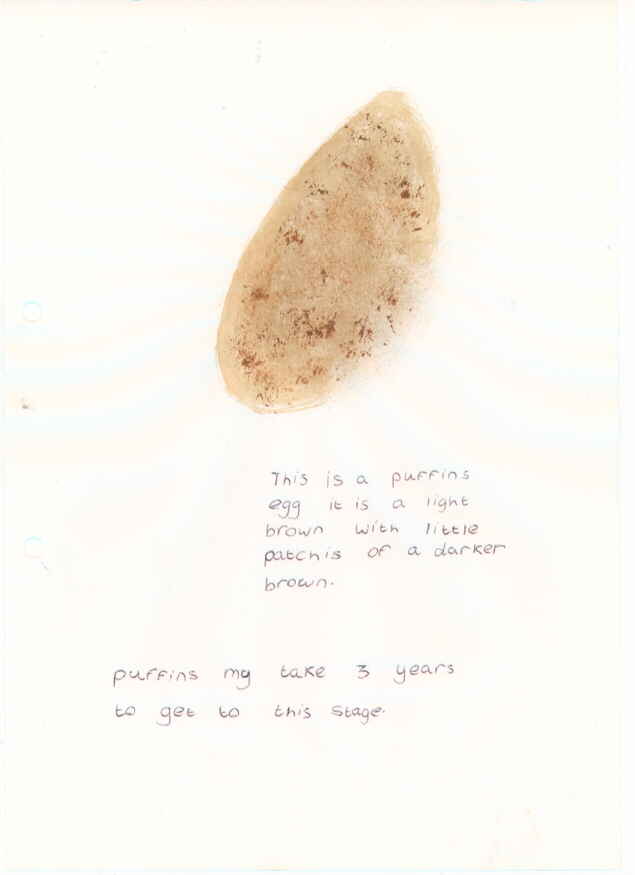 This is a puffins
egg it is a light
brown with little
patchis of a darker
brown.
puffins my take 3 years
to get to this stage.